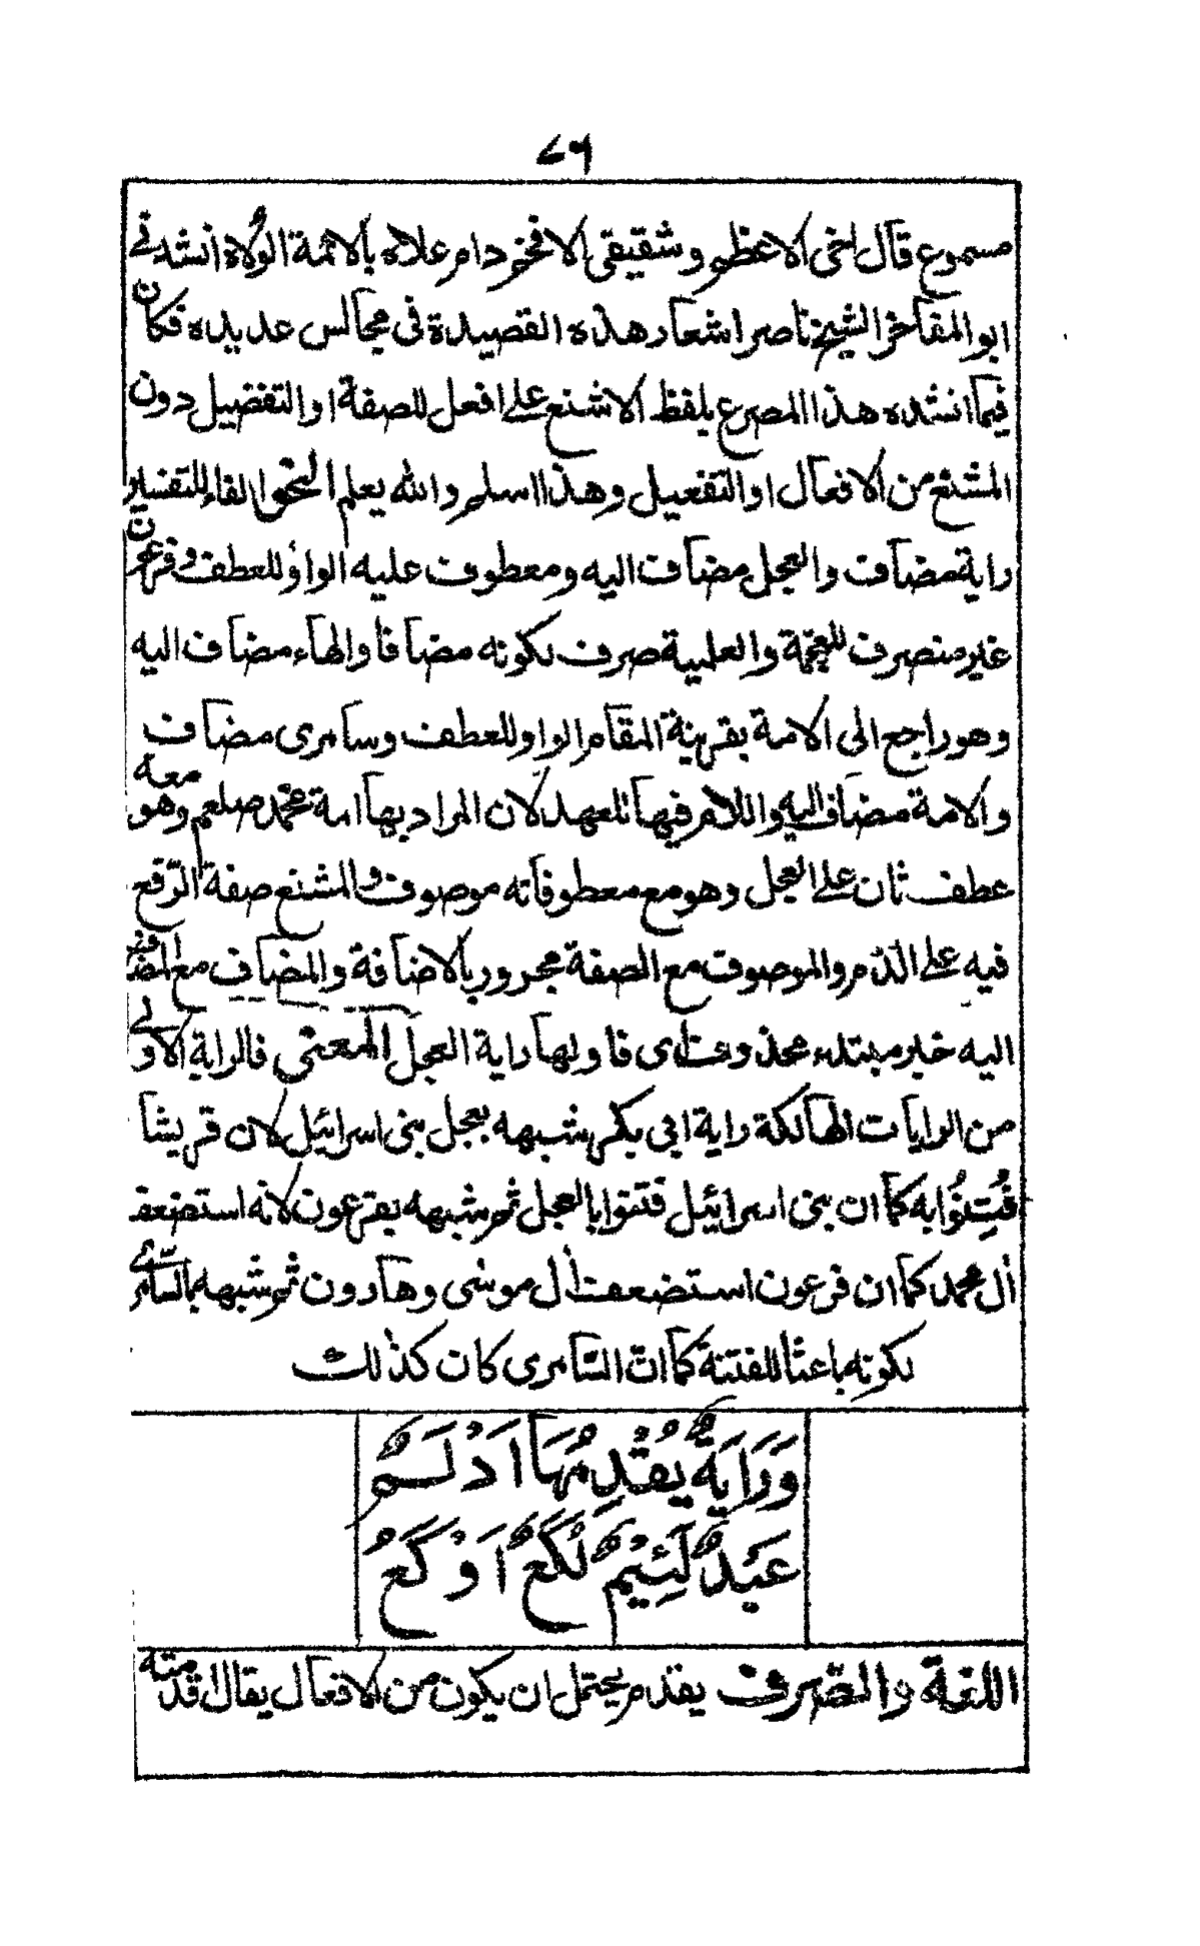 ٧٦
مسموع قال اخى الاعظم وشقيقى الافخر دام علاه بالائمة الولاة انشدنى
ابو المفاخر الشيخ ناصر اشعار هذه القصيدة فى مجالس عديده فكان
فيما انشده هذا المصرع بلفظ الاشنع على افعل للصفة او التفضيل دون
المشنع من الافعال او التفعيل وهذا اسلم والله يعلم النحو الفاء للتفسير
راية مضاف والعجل مضاف اليه ومعطوف عليه الواو للعطف وفرعون
غير منصرف للعجمة والعلمية صرف لكونه مضافا والهاء مضاف اليه
وهو راجع الى الامة بقرينة المقام الواو للعطف وسامرى مضاف
والامة مضاف اليه واللام فيها للعهد لان المراد بها امة محمد صلعم وهو معه
عطف ثان على العجل وهو مع معطوفاته موصوف والمشنع صفة الرّقع
فيه على الذم والموصوف مع الصفة مجرور بالاضافة والمضاف مع المضاف
اليه خبر مبتدء محذوف اى فاولها راية العجل المعنى فالراية الاولى
من الرايات الهالكة راية ابى بكر شبهه بعجل بنى اسرائيل لان قريشا
فُتِنُوا به كما ان بنى اسرائيل فتنوا بالعجل ثم شبهه بفرعون لانه استضعف
أل محمد كما ان فرعون استضعف أل موسى وهارون ثم شبهه بالسّامرى
لكونه باعثا للفتنة كما انّ السّامرى كان كذلك
وَرَايَةٌ يُقْدِمُهَا اَدْلَمٌ
عَبْدٌ لَئِيْمٌ لُكَعٌ اَوْكَعُ
اللغة والصّرف يقدم يحتمل ان يكون من الافعال يقال اقدمته